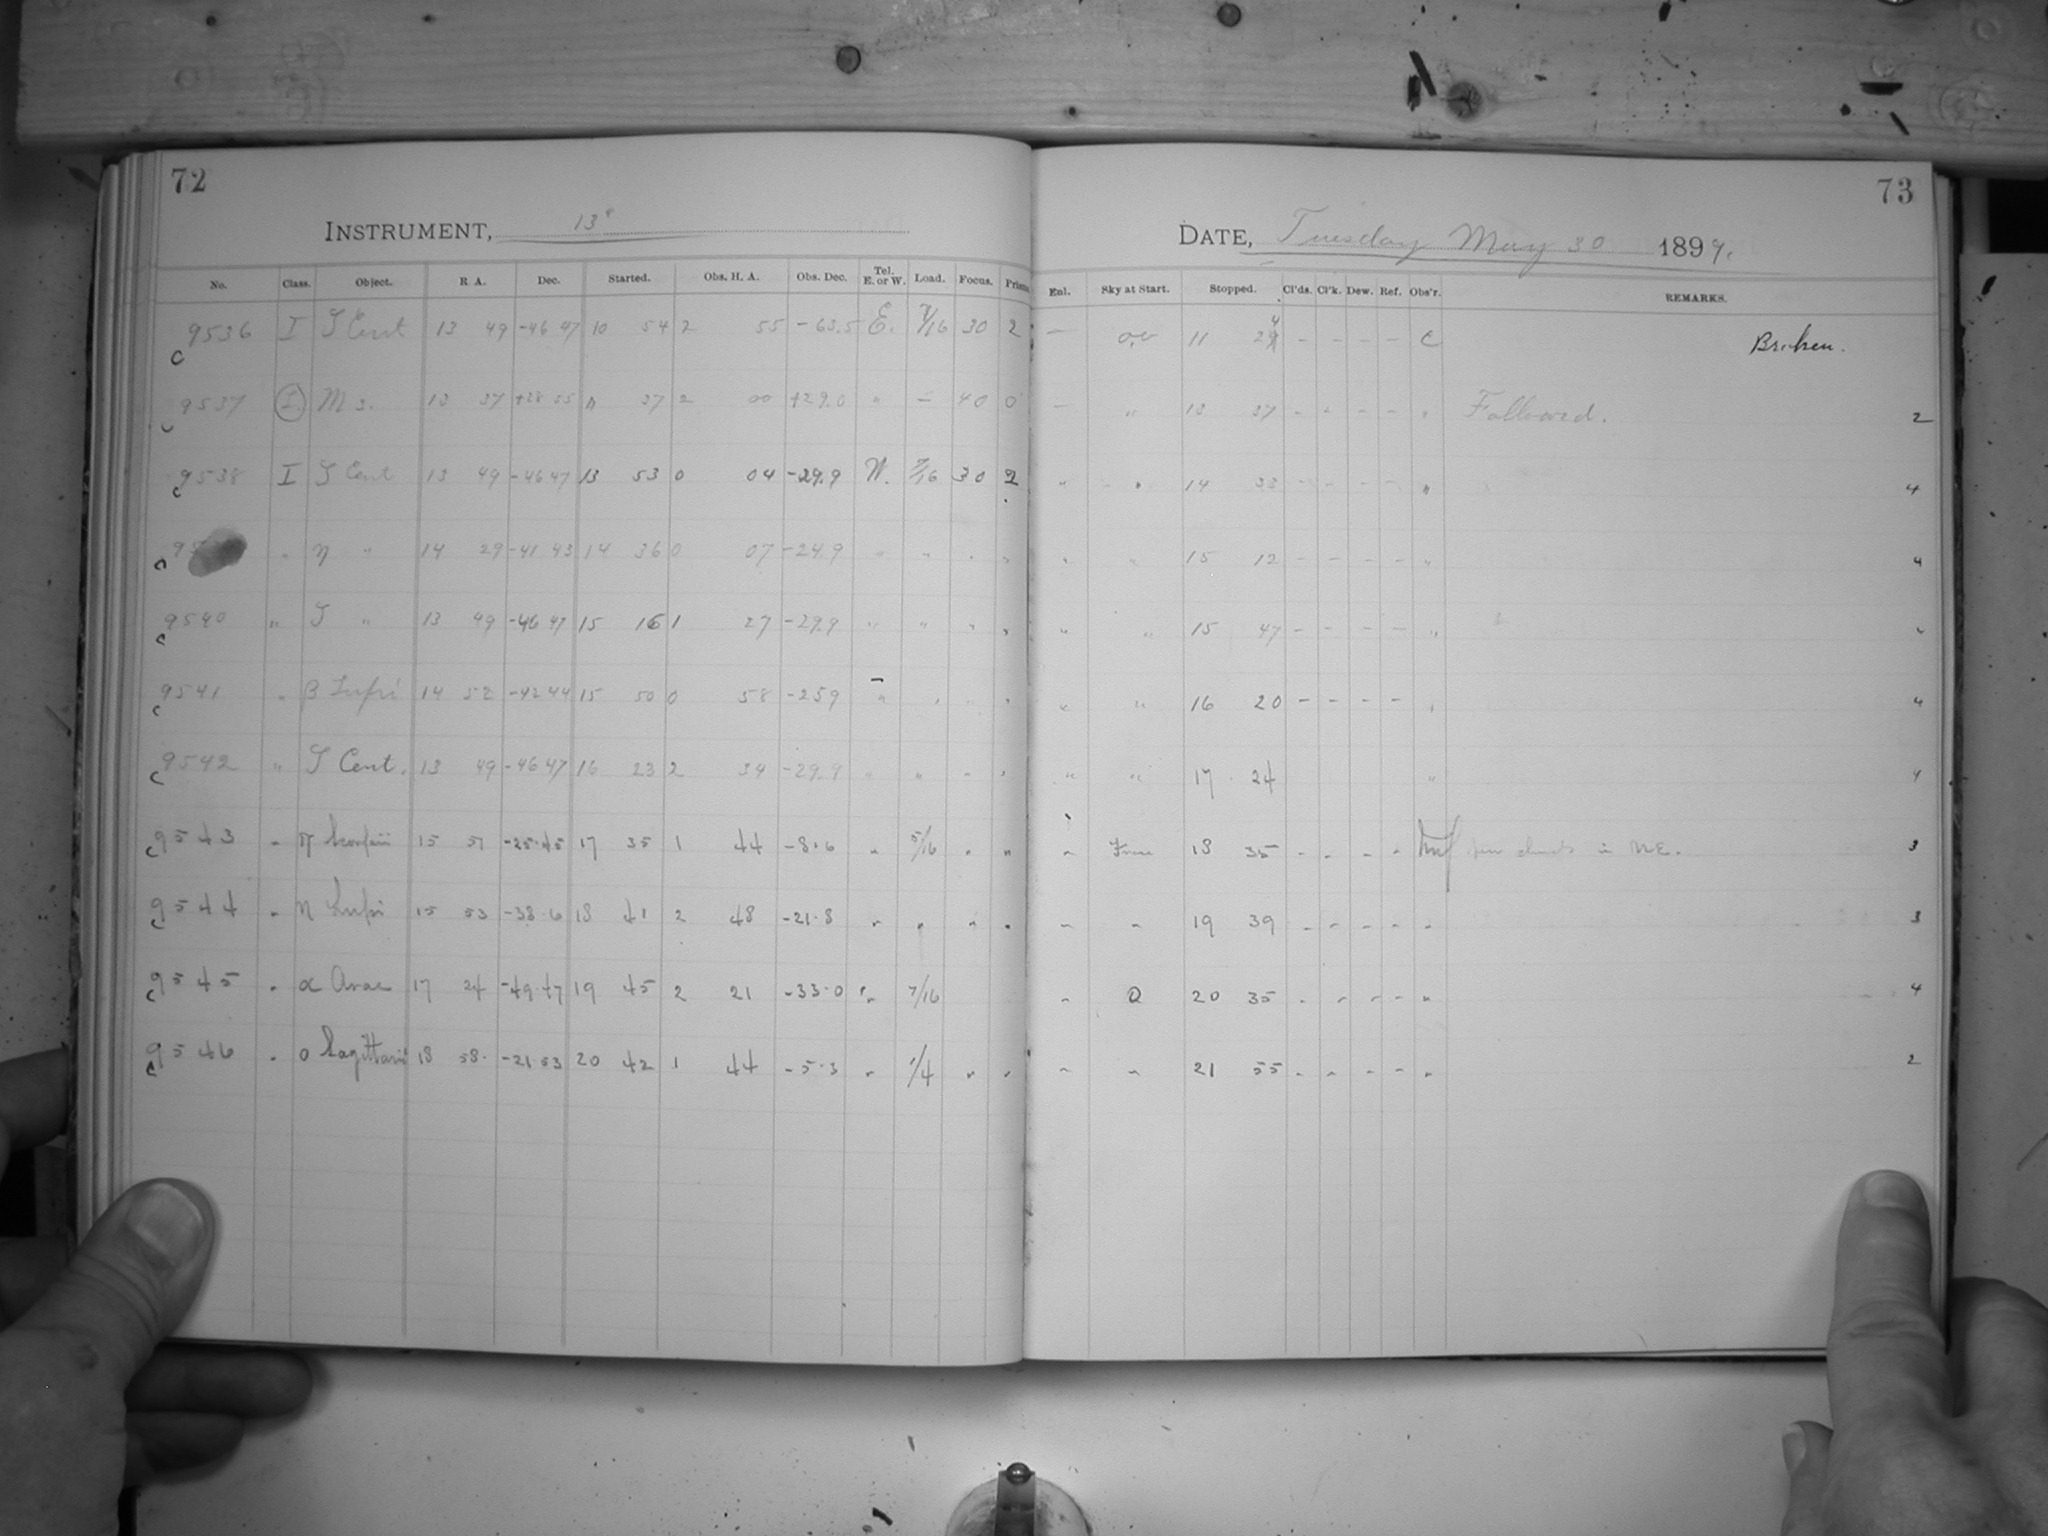 72
INSTRUMENT, 13"
No. Class. Object. R. A. Dec. Started. Obs. H. A. Obs. Dec. Tel. E. or W. Load. Focus. Prism
9536 I Cent 13 49 -46 47 10 54 2 55 -63.5 E. /16 30 2
9537 I M 3. 13 37 +28 55 11 37 2 00 +29.0 " - 40 0
9538 I Cent 13 49 -46 47 13 53 0 04 -29.9 W. /16 30 2
95 " η " 14 29 -41 43 14 36 0 07 -24.9 " " " "
9540 " " 13 49 -46 47 15 16 1 27 -29.9 " " " "
9541 " β Lupi 14 52 -42 44 15 50 0 58 -25.9 " " " "
9542 " Cent. 13 49 -46 47 16 23 2 34 -29.9 " " " "
9543 " Scorpii 15 51 -25.45 17 35 1 44 -8.6 " 5/16 " "
9544 " η Lupi 15 53 -38.6 18 41 2 48 -21.8 " " " "
9545 " α Arae 17 24 -49.47 19 45 2 21 -33.0 " 7/16
9546 " o Sagittarii 18 58 -21 53 20 42 1 44 -5.3 " 1/4 " "
73
DATE, Tuesday May 30 1899.
Enl. Sky at Start. Stopped. Cl'ds. Cl'k. Dew. Ref. Obs'r. REMARKS.
— 11 24 - - - - C Broken.
— " 13 37 - - - - " Followed. 2
" " 14 33 - - - - " 4
" " 15 12 - - - - " 4
" " 15 47 - - - - "
" " 16 20 - - - - " 4
" " 17 24 " 4
" 18 35 - - - - few clouds in NE. 3
" " 19 39 - - - - " 3
" 20 35 - - - - " 4
" " 21 55 - - - - " 2